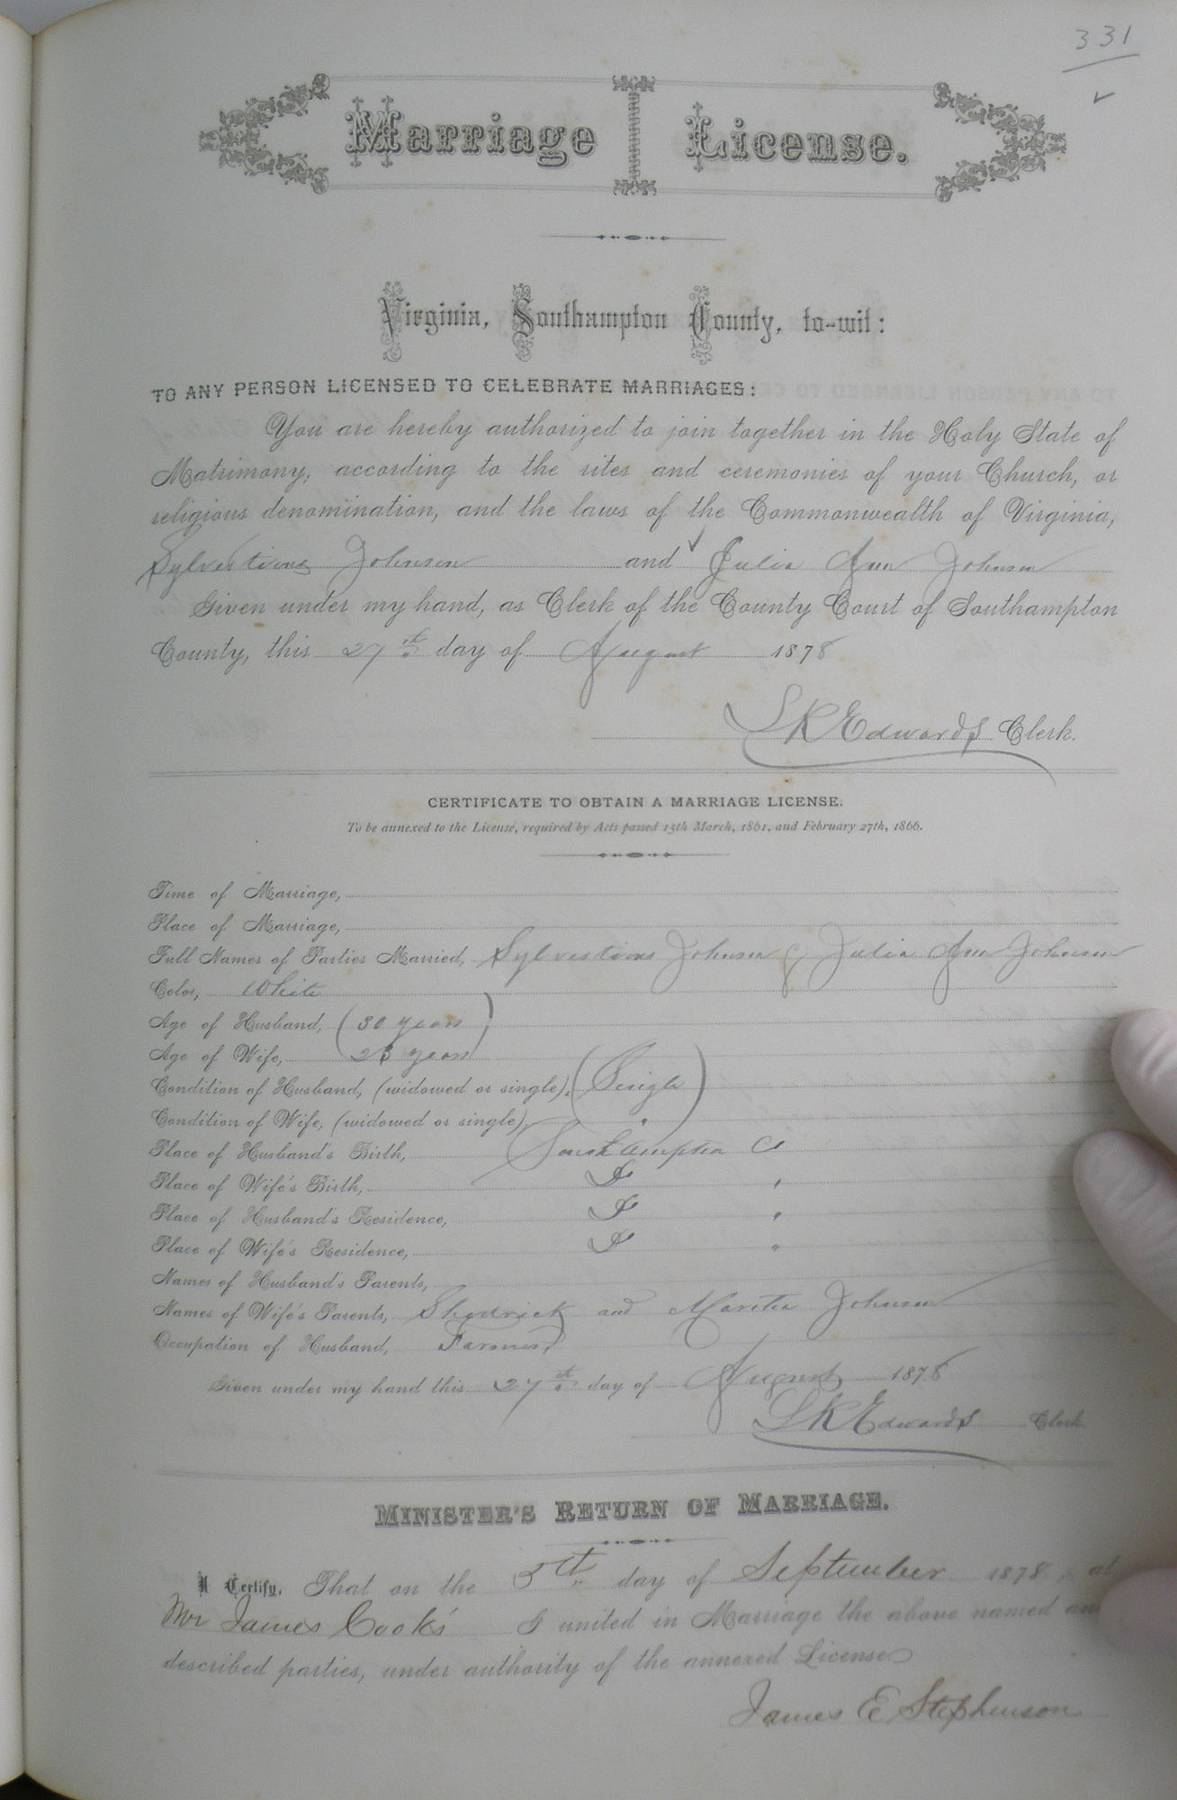 331
Marriage License.
Virginia, Southampton County, to-wit:
TO ANY PERSON LICENSED TO CELEBRATE MARRIAGES:
You are hereby authorized to join together in the Holy State of
Matrimony, according to the rites and ceremonies of your Church, or
religious denomination, and the laws of the Commonwealth of Virginia,
Johnson and Julia Ann Johnson
Given under my hand, as Clerk of the County Court of Southampton
County, this 27th day of August 1878
L R Edwards Clerk.
CERTIFICATE TO OBTAIN A MARRIAGE LICENSE.
To be annexed to the License, required by Acts passed 15th March, 1861, and February 27th, 1866.
Time of Marriage,
Place of Marriage,
Full Names of Parties Married, Johnson & Julia Ann Johnson
Color, White
Age of Husband, (30 years)
Age of Wife, years
Condition of Husband, (widowed or single), (Single)
Condition of Wife, (widowed or single), "
Place of Husband's Birth, Southampton Co
Place of Wife's Birth, "
Place of Husband's Residence, "
Place of Wife's Residence, "
Names of Husband's Parents,
Names of Wife's Parents, Shedrick and Johnson
Occupation of Husband, Farmer
Given under my hand this 27th day of August 1878
L R Edwards Clerk
MINISTER'S RETURN OF MARRIAGE.
I Certify, That on the 5th day of September 1878, at
Mr James Cook's I united in Marriage the above named and
described parties, under authority of the annexed License
James E Stephenson